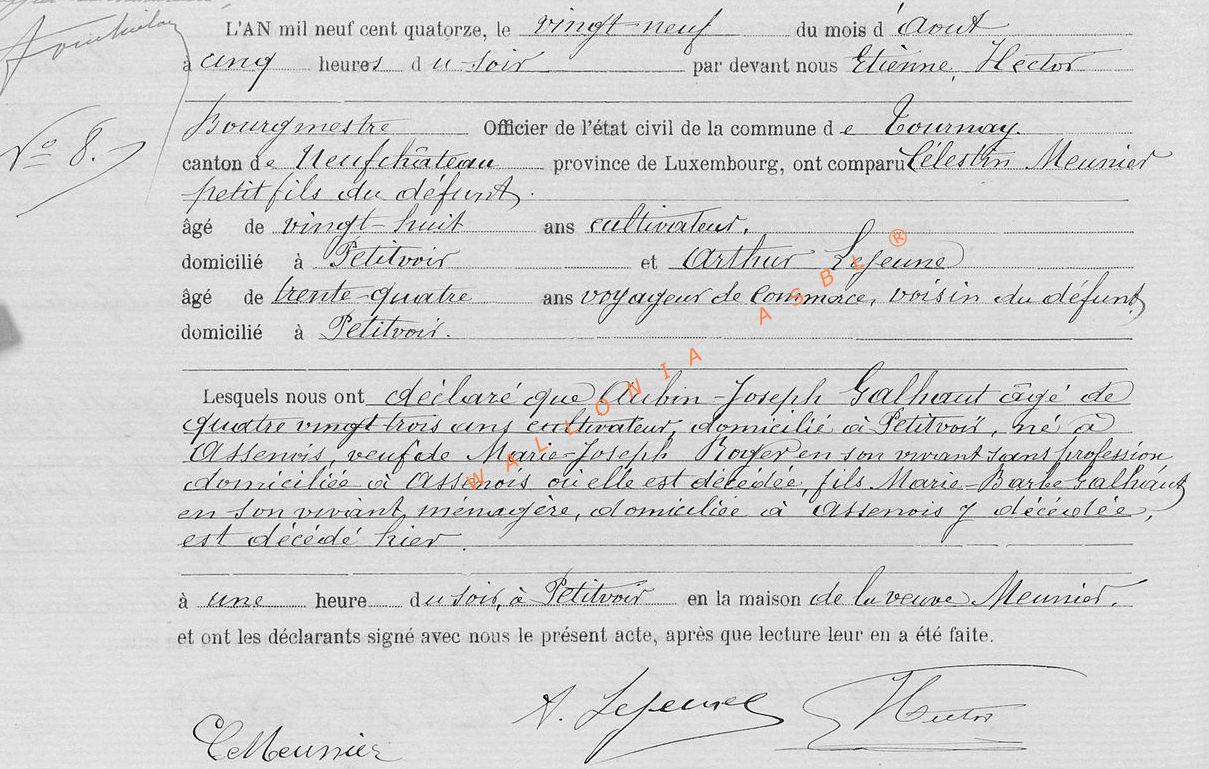 L'AN mil neuf cent quatorze, le vingt-neuf du mois d'aout
à cinq heures du soir par devant nous Etienne, Hector
Bourgmestre Officier de l'état civil de la commune de Tournay
N° 8.
canton de Neufchâteau province de Luxembourg, ont comparu Célestin Meunier
petit fils du défunt.
âgé de vingt-huit ans cultivateur.
domicilié à Petitvoir et Arthur Lejeune
âgé de trente-quatre ans voyageur de commerce, voisin du défunt
domicilié à Petitvoir.
Lesquels nous ont déclaré que Aubin-Joseph Galhaut âgé de
quatre vingt trois ans cultivateur, domicilié à Petitvoir, né à
Assenois, veuf de Marie-Joseph Royer en son vivant sans profession
domiciliée à Assenois où elle est décédée, fils Marie-Barbe Galhaut
en son vivant, ménagère, domiciliée à Assenois y décédée,
est décédé hier.
à une heure du soir, à Petitvoir en la maison de la veuve Meunier.
et ont les déclarants signé avec nous le présent acte, après que lecture leur en a été faite.
A. Lejeune Hector
C. Meunier
WALLONIA ASBL ®